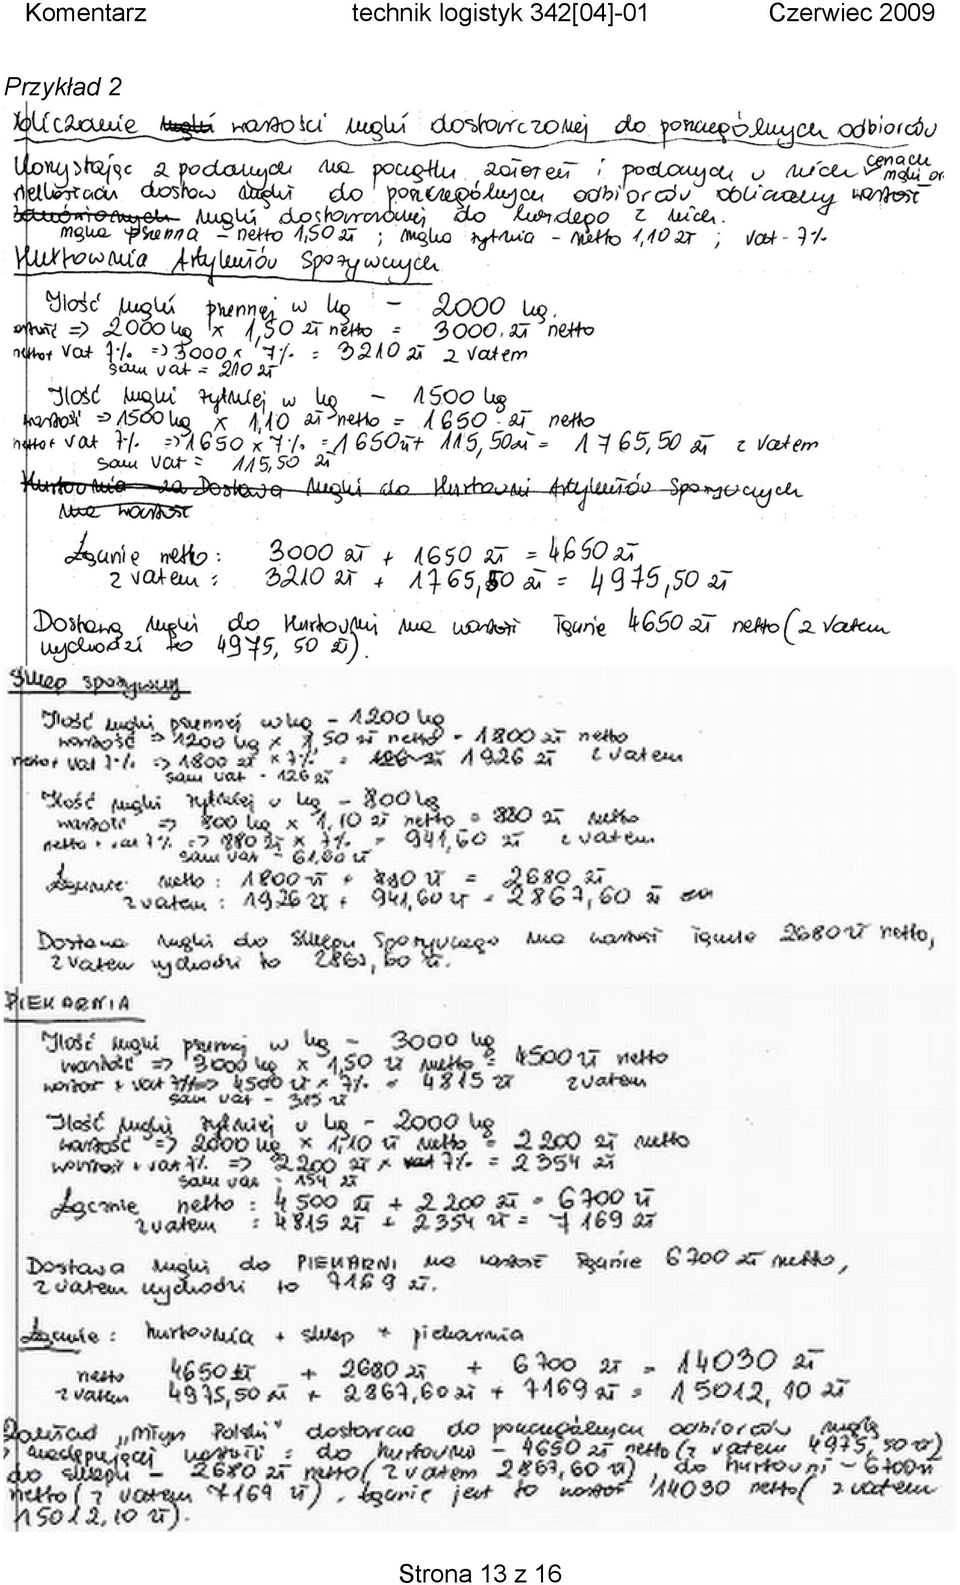 Komentarz technik logistyk 342[04]-01 Czerwiec 2009
Przykład 2
Obliczanie wartości mąki dostarczonej do poszczególnych odbiorców
Korzystając z podanych na początku założeń i podanych w nich cenach mąki or
ilościach dostaw mąki do poszczególnych odbiorców obliczamy wartość
mąki dostarczonej do każdego z nich.
mąka pszenna - netto 1,50 zł ; mąka żytnia - netto 1,10 zł ; vat - 7%
Hurtownia Artykułów Spożywczych
Ilość mąki pszennej w kg - 2000 kg.
wartość => 2000 kg x 1,50 zł netto = 3000. zł netto
netto+ Vat 7% => 3000 x 7% = 3210 zł z vatem
sam vat = 210 zł
Ilość mąki żytniej w kg - 1500 kg
wartość => 1500 kg x 1,10 zł netto = 1650 zł netto
netto+ vat 7% => 1650 x 7% = 1650zł+ 115,50zł = 1765,50 zł z vatem
sam vat = 115,50 zł
Hurtownia za Dostawa Mąki do Hurtowni Artykułów Spożywczych
ma wartość
Łącznie netto: 3000 zł + 1650 zł = 4650 zł
z vatem : 3210 zł + 1765,50 zł = 4975,50 zł
Dostawa mąki do Hurtowni ma wartość łącznie 4650 zł netto (z Vatem
wychodzi to 4975,50 zł).
Sklep spożywczy
Ilość mąki pszennej w kg - 1200 kg
wartość => 1200 kg x 1,50 zł netto = 1800 zł netto
netto+ vat 7% => 1800 zł x 7% = 126 zł 1926 zł z Vatem
sam vat - 126 zł
Ilość mąki żytniej w kg - 800 kg
wartość => 800 kg x 1,10 zł netto = 880 zł netto
netto + vat 7% => 880 zł x 7% = 941,60 zł z vatem
sam vat - 61,60 zł
Łącznie: netto : 1800 zł + 880 zł = 2680 zł
z vatem : 1926 zł + 941,60 zł = 2867,60 zł
Dostawa mąki do Sklepu Spożywczego ma wartość łącznie 2680 zł netto,
z Vatem wychodzi to 2867,60 zł.
PIEKARNIA
Ilość mąki pszennej w kg - 3000 kg
wartość => 3000 kg x 1,50 zł netto = 4500 zł netto
wartość + vat 7% => 4500 zł x 7% = 4815 zł z vatem
sam vat - 315 zł
Ilość mąki żytniej w kg - 2000 kg
wartość => 2000 kg x 1,10 zł netto = 2200 zł netto
wartość + vat 7% => 2200 zł x vat 7% = 2354 zł
sam vat = 154 zł
Łącznie netto : 4500 zł + 2200 zł = 6700 zł
z vatem : 4815 zł + 2354 zł = 7169 zł
Dostawa mąki do PIEKARNI ma wartość łącznie 6700 zł netto,
z vatem wychodzi to 7169 zł.
Łącznie : hurtownia + sklep + piekarnia
netto 4650 zł + 2680 zł + 6700 zł = 14030 zł
z vatem 4975,50 zł + 2867,60 zł + 7169 zł = 15012,10 zł
Zakład „Młyn Polski" dostarcza do poszczególnych odbiorców mąkę
następującej wartości : do hurtowni - 4650 zł netto (z vatem 4975,50 zł)
do sklepu - 2680 zł netto (z vatem 2867,60 zł), do hurtowni - 6700 zł
netto (z vatem 7169 zł), łącznie jest to wartość 14030 netto (z vatem
15012,10 zł).
Strona 13 z 16